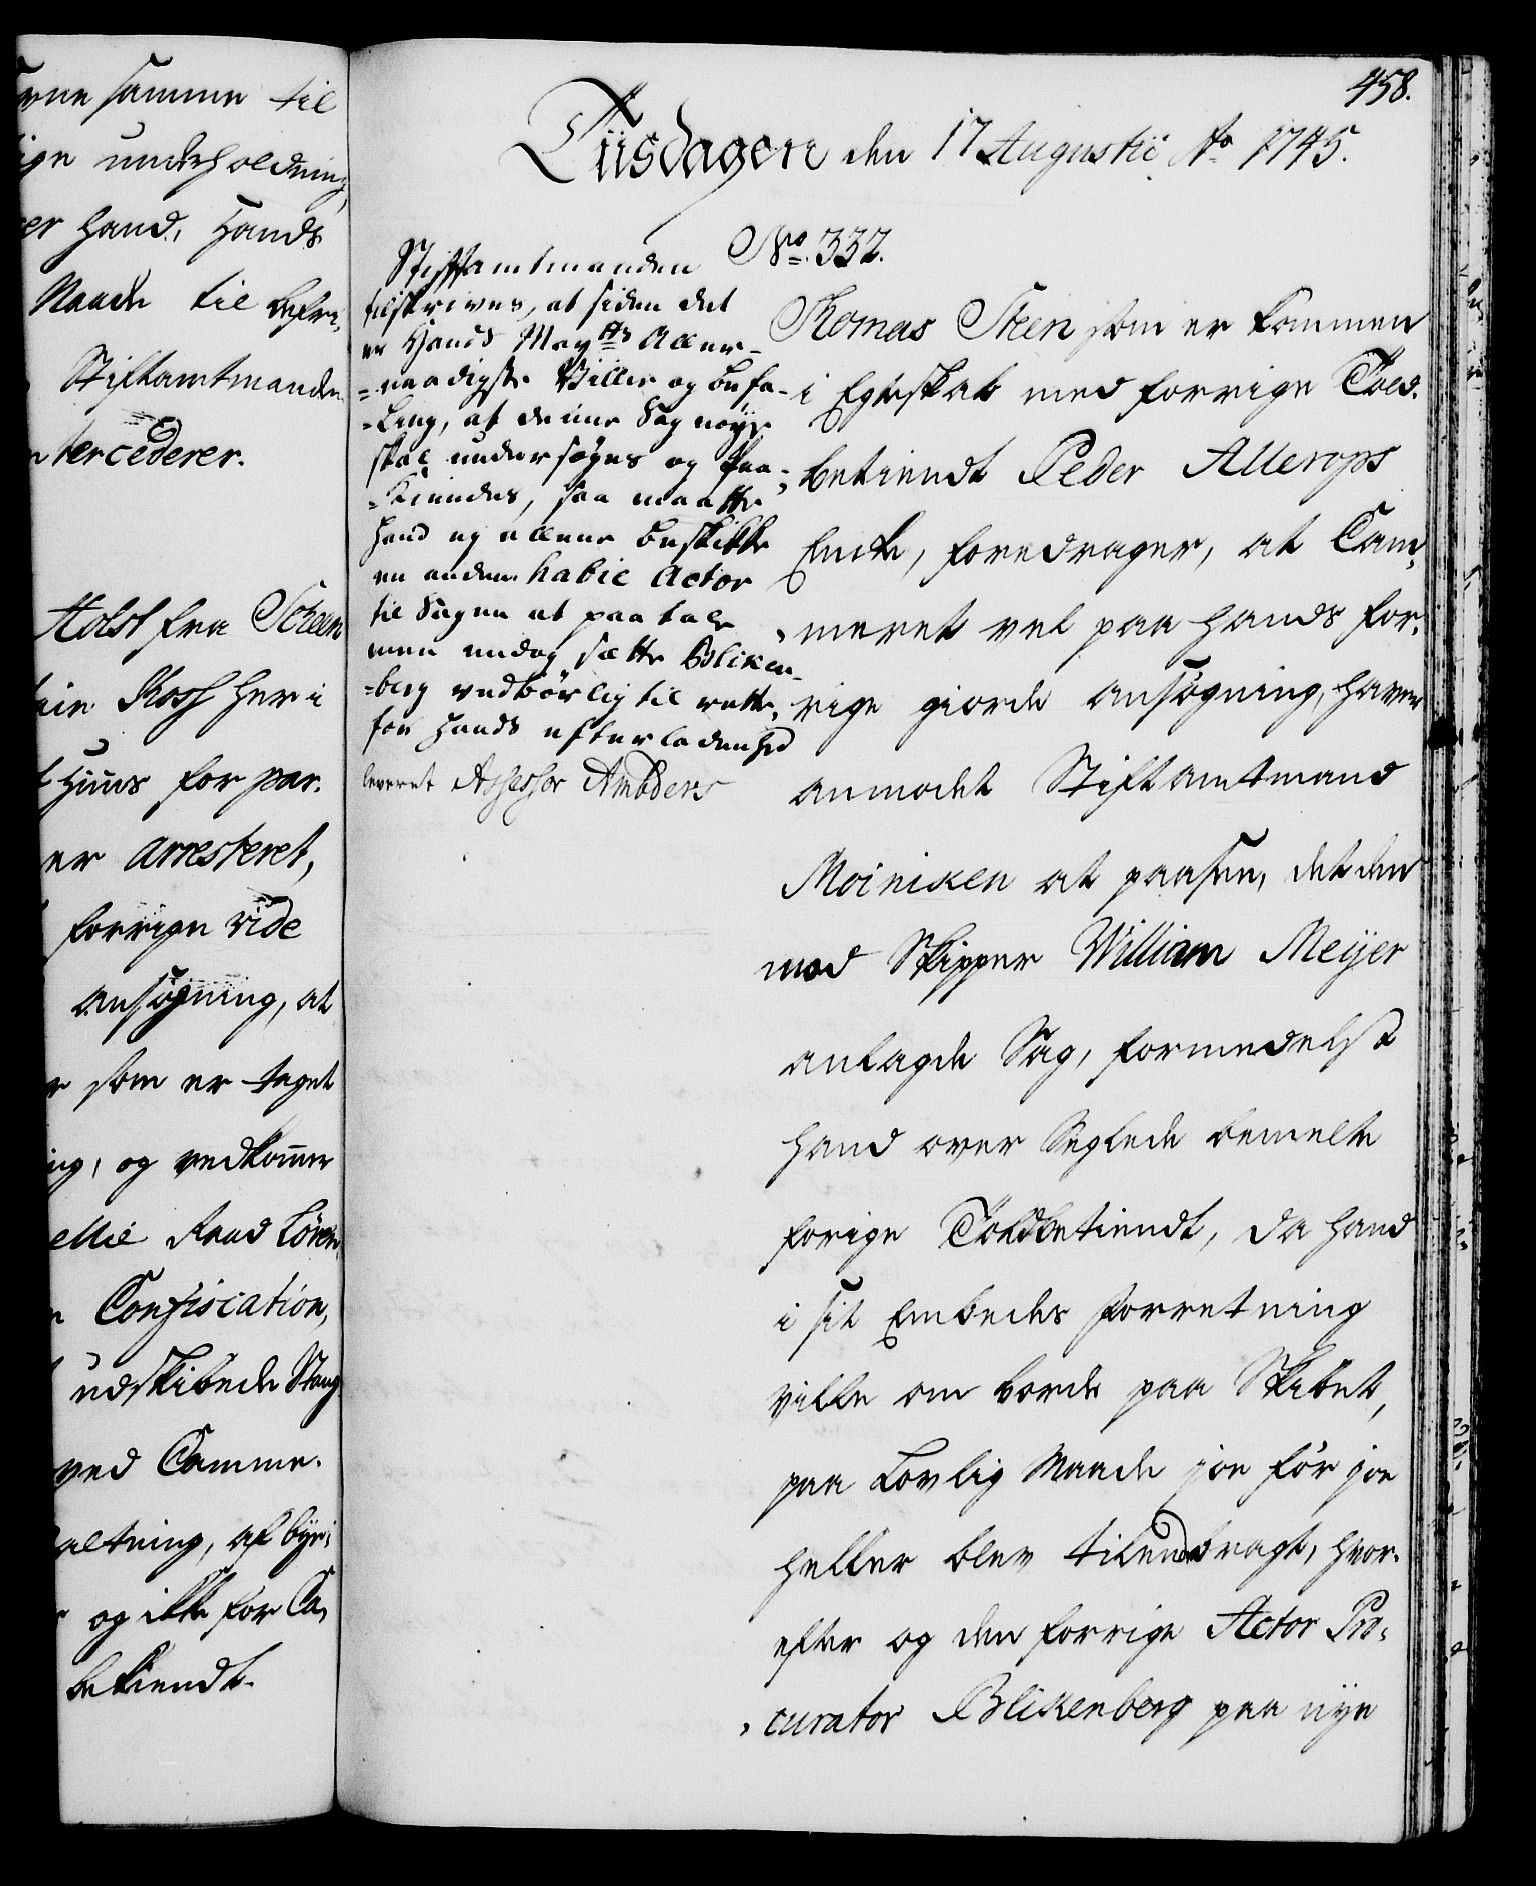 ne samme til
ige underholdning,
er hand, Hands
Naade til befri,
Stiftamtmanden
tercederer.
Holst fra Scheen
Kosch her i
Huus for par.
er arresteret,
forrige vide
ansøgning, at
som er taget
ing, og vedkommer
Raad Löven
Confiscation,
udskibede Stang
ved Camme.
altning, af byr,
og ikke for Ca,
betiendt.
458.
Tiisdagen den 17 Augustii Ao 1745.
No. 332.
Stiftamtmanden
tilskrives, at siden det
er Hands Mayts Aller-
=naadigste Villie og befa-
=ling, at denne Sag nøye
skal undersøges og Paa-
=kiendes, saa maatte
hand ey allene beskikke
en anden habil Actor
til Sagen at paatale
men endog sætte Bliken-
=berg vedbörlig til rette,
for hands efterladenhed
leveret Assessor Ambders
Thomas Steen som er kommen
i Egteskab med forrige Told,
betiendt Peder Allerops
Enke, foredrager, at Cam,
meret vel paa hands for,
rige giorde ansøgning, haver
anmodet Stiftamtmand
Moiniken at paasee, det den
mod Skipper William Meijer
anlagde Sag, formedelst
hand over Seglede bemelte
forige Toldbetiendt, da hand
i sit Embedes Forretning
ville om borde paa Skibet,
paa Lovlig Maade joe för joe
heller blev tilendebragt, hvor,
efter og den forrige Actor Pro,
curator Blikenberg paa nye